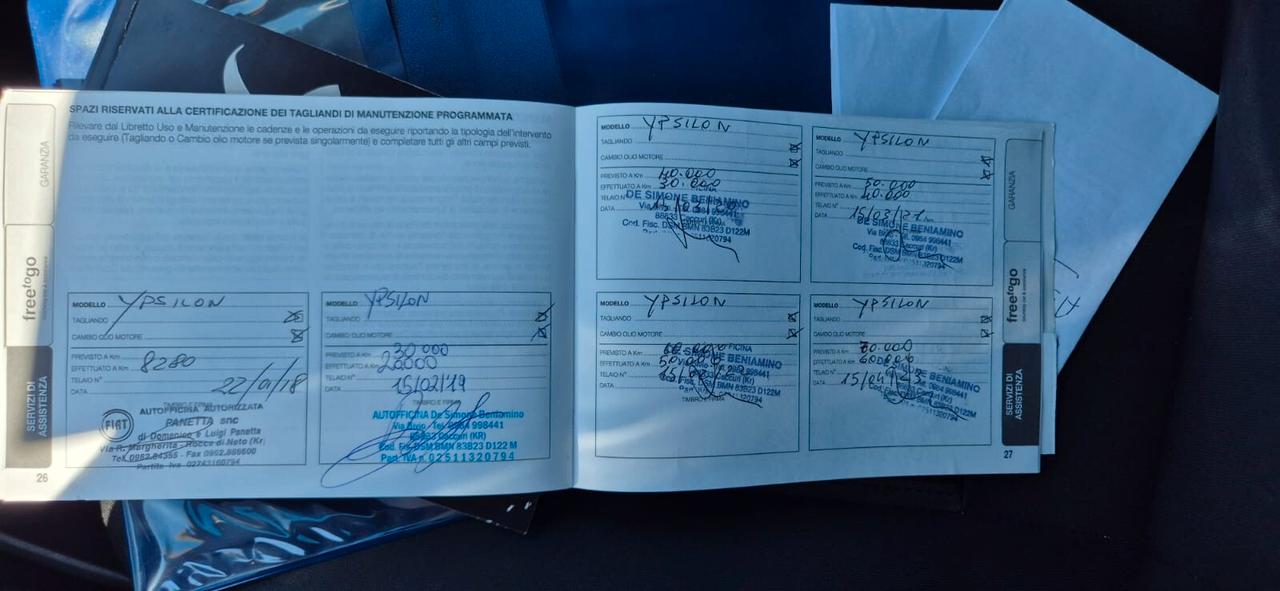 SPAZI RISERVATI ALLA CERTIFICAZIONE DEI TAGLIANDI DI MANUTENZIONE PROGRAMMATA
Rilevare dal Libretto Uso e Manutenzione le cadenze e le operazioni da eseguire riportando la tipologia dell'intervento
da eseguire (Tagliando o Cambio olio motore se prevista singolarmente) e completare tutti gli altri campi previsti.
GARANZIA
freetogo
SERVIZI DI
ASSISTENZA
MODELLO YPSILON
TAGLIANDO
CAMBIO OLIO MOTORE
PREVISTO A Km
EFFETTUATO A Km 8280
TELAIO N°
DATA
TIMBRO E FIRMA
AUTOFFICINA AUTORIZZATA
FIAT
PANETTA snc
di Domenico e Luigi Panetta
Via R. Margherita - Rocca di Neto (Kr)
Partita Iva 02743160794
26
MODELLO YPSILON
TAGLIANDO
CAMBIO OLIO MOTORE
PREVISTO A Km 30000
EFFETTUATO A Km 20000
TELAIO N°
DATA 15/02/19
TIMBRO E FIRMA
AUTOFFICINA De Simone Beniamino
Via Bivio Tel. 0984 998441
88833 Caccuri (KR)
Cod. Fis. DSM BMN 83B23 D122 M
Part. IVA n. 02511320794
MODELLO YPSILON
TAGLIANDO
CAMBIO OLIO MOTORE
PREVISTO A Km 40.000
EFFETTUATO A Km 30.000
TELAIO N°
DATA
DE SIMONE BENIAMINO
88833 Caccuri (Kr)
Cod. Fisc. DSM BMN 83B23 D122M
MODELLO YPSILON
TAGLIANDO
CAMBIO OLIO MOTORE
PREVISTO A Km 50.000
EFFETTUATO A Km 40.000
TELAIO N°
DATA 15/03/21
DE SIMONE BENIAMINO
Via Bivio Tel. 0984 998441
88833 Caccuri (Kr)
Cod. Fisc. DSM BMN 83B23 D122M
MODELLO YPSILON
TAGLIANDO
CAMBIO OLIO MOTORE
PREVISTO A Km
EFFETTUATO A Km
TELAIO N°
DATA
DE SIMONE BENIAMINO
TIMBRO E FIRMA
MODELLO YPSILON
TAGLIANDO
CAMBIO OLIO MOTORE
PREVISTO A Km
EFFETTUATO A Km
TELAIO N°
DATA
GARANZIA
freetogo
SERVIZI DI
ASSISTENZA
27